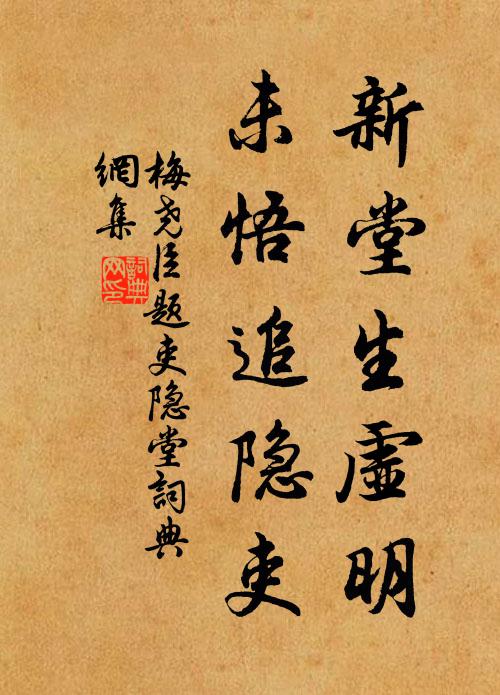 新堂生虚明
未悟追隐吏
梅尧臣题吏隐堂詞典
網集
詞典
网印